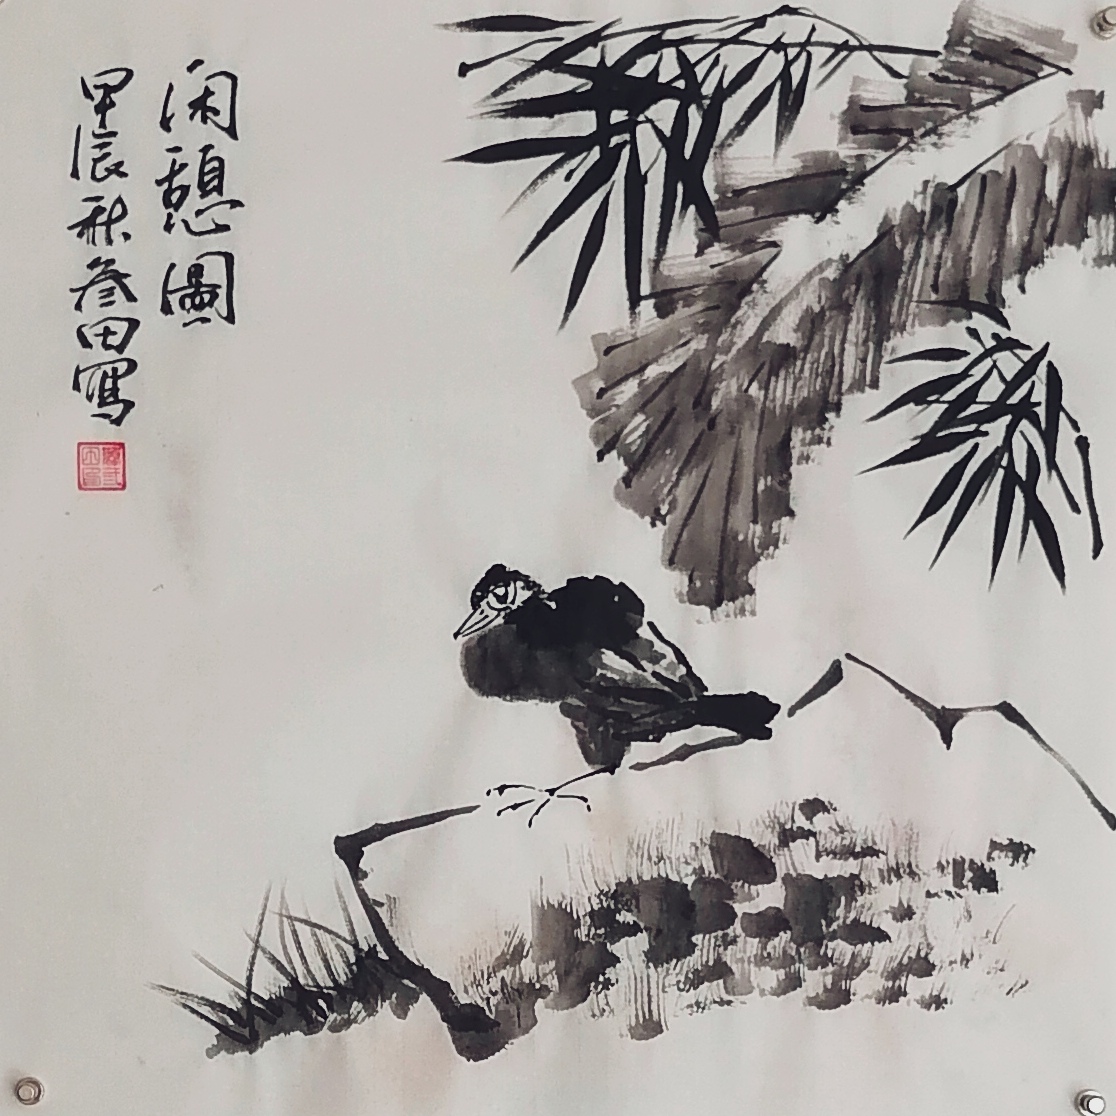 闲憩圖
甲辰秋叁田寫